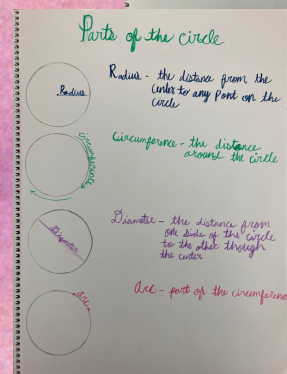 Parts of the circle
Radius - the distance from the
center to any pont on the
circle
Radius
Circumference - the distance
around the circle
circumference
Diameter - the distance from
one side of the circle
to the other though
the center
Diameter
Arc - part of the circumference
arc